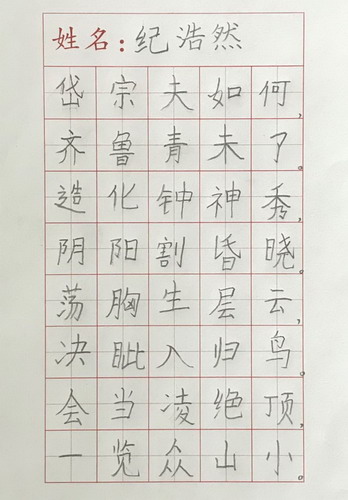 姓名:纪浩然
岱宗夫如何,
齐鲁青未了。
造化钟神秀,
阴阳割昏晓。
荡胸生层云,
决眦入归鸟。
会当凌绝顶,
一览众山小。